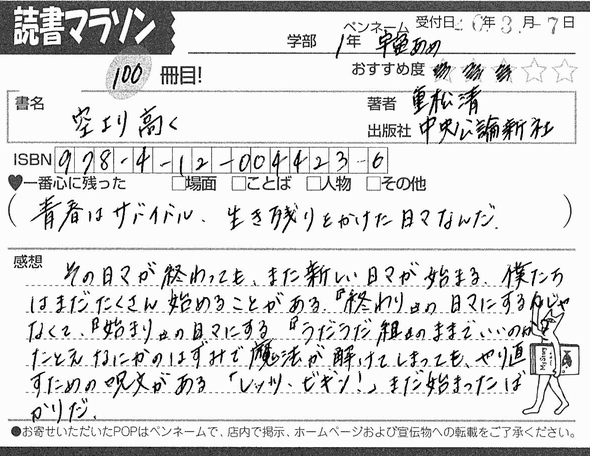 読書マラソン
学部 1年 ペンネーム 宇宙あめ 受付日 年3月-7日
100 冊目!
おすすめ度 ★★★☆☆
書名 空より高く
著者 重松清
出版社 中央公論新社
ISBN 978-4-12-004423-6
♥一番心に残った □場面 □ことば □人物 □その他
(青春はサバイバル、生き残りをかけた日々なんだ。)
感想
その日々が終わっても、また新しい日々が始まる。僕たち
はまだたくさん始めることがある。『終わり』の日々にするんじゃ
なくて、『始まり』の日々にする『うだうだ組』のままでいいのか
たとえなにかのはずみで魔法が解けてしまっても、やり直
すための呪文がある「レッツ・ビギン!」まだ始まったば
かりだ。
●お寄せいただいたPOPはペンネームで、店内で掲示、ホームページおよび宣伝物への転載をご了承ください。